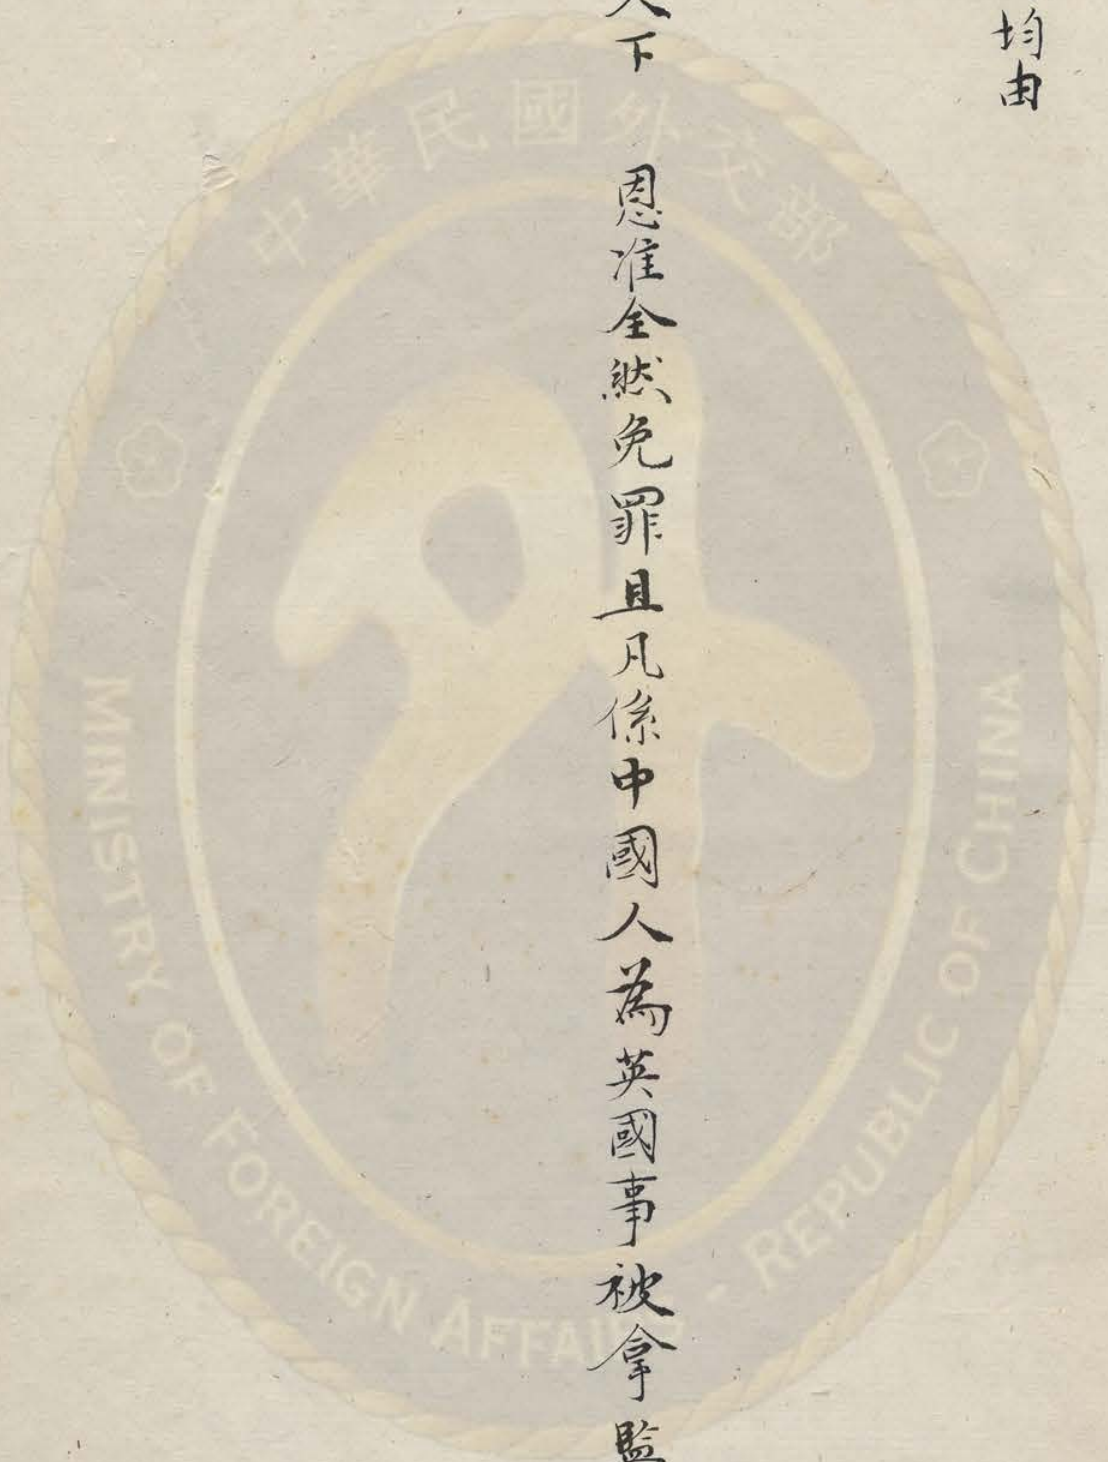 均由
天下 恩准全然免罪且凡係中國人為英國事被拿監
中華民國外交部
MINISTRY OF FOREIGN AFFAIRS - REPUBLIC OF CHINA